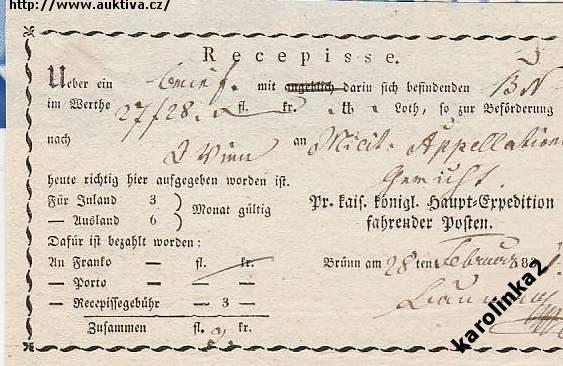 http://www.auktiva.cz/
Recepisse.
Ueber ein Brief. mit angeblich darin sich befindenden BN
im Werthe 27/28. fl. kr. Loth, so zur Beförderung
nach Wien an Milit. Appellations
heute richtig hier aufgegeben worden ist. Gericht.
Für Inland 3 } Monat gültig
— Ausland 6
Pr. kais. königl. Haupt-Expedition
fahrender Posten.
Dafür ist bezahlt worden:
An Franko — fl. kr.
Brünn am 28 ten Februar 18
— Porto — —
— Recepissegebühr — 3 —
Zusammen fl. 3 kr.
karolinka2